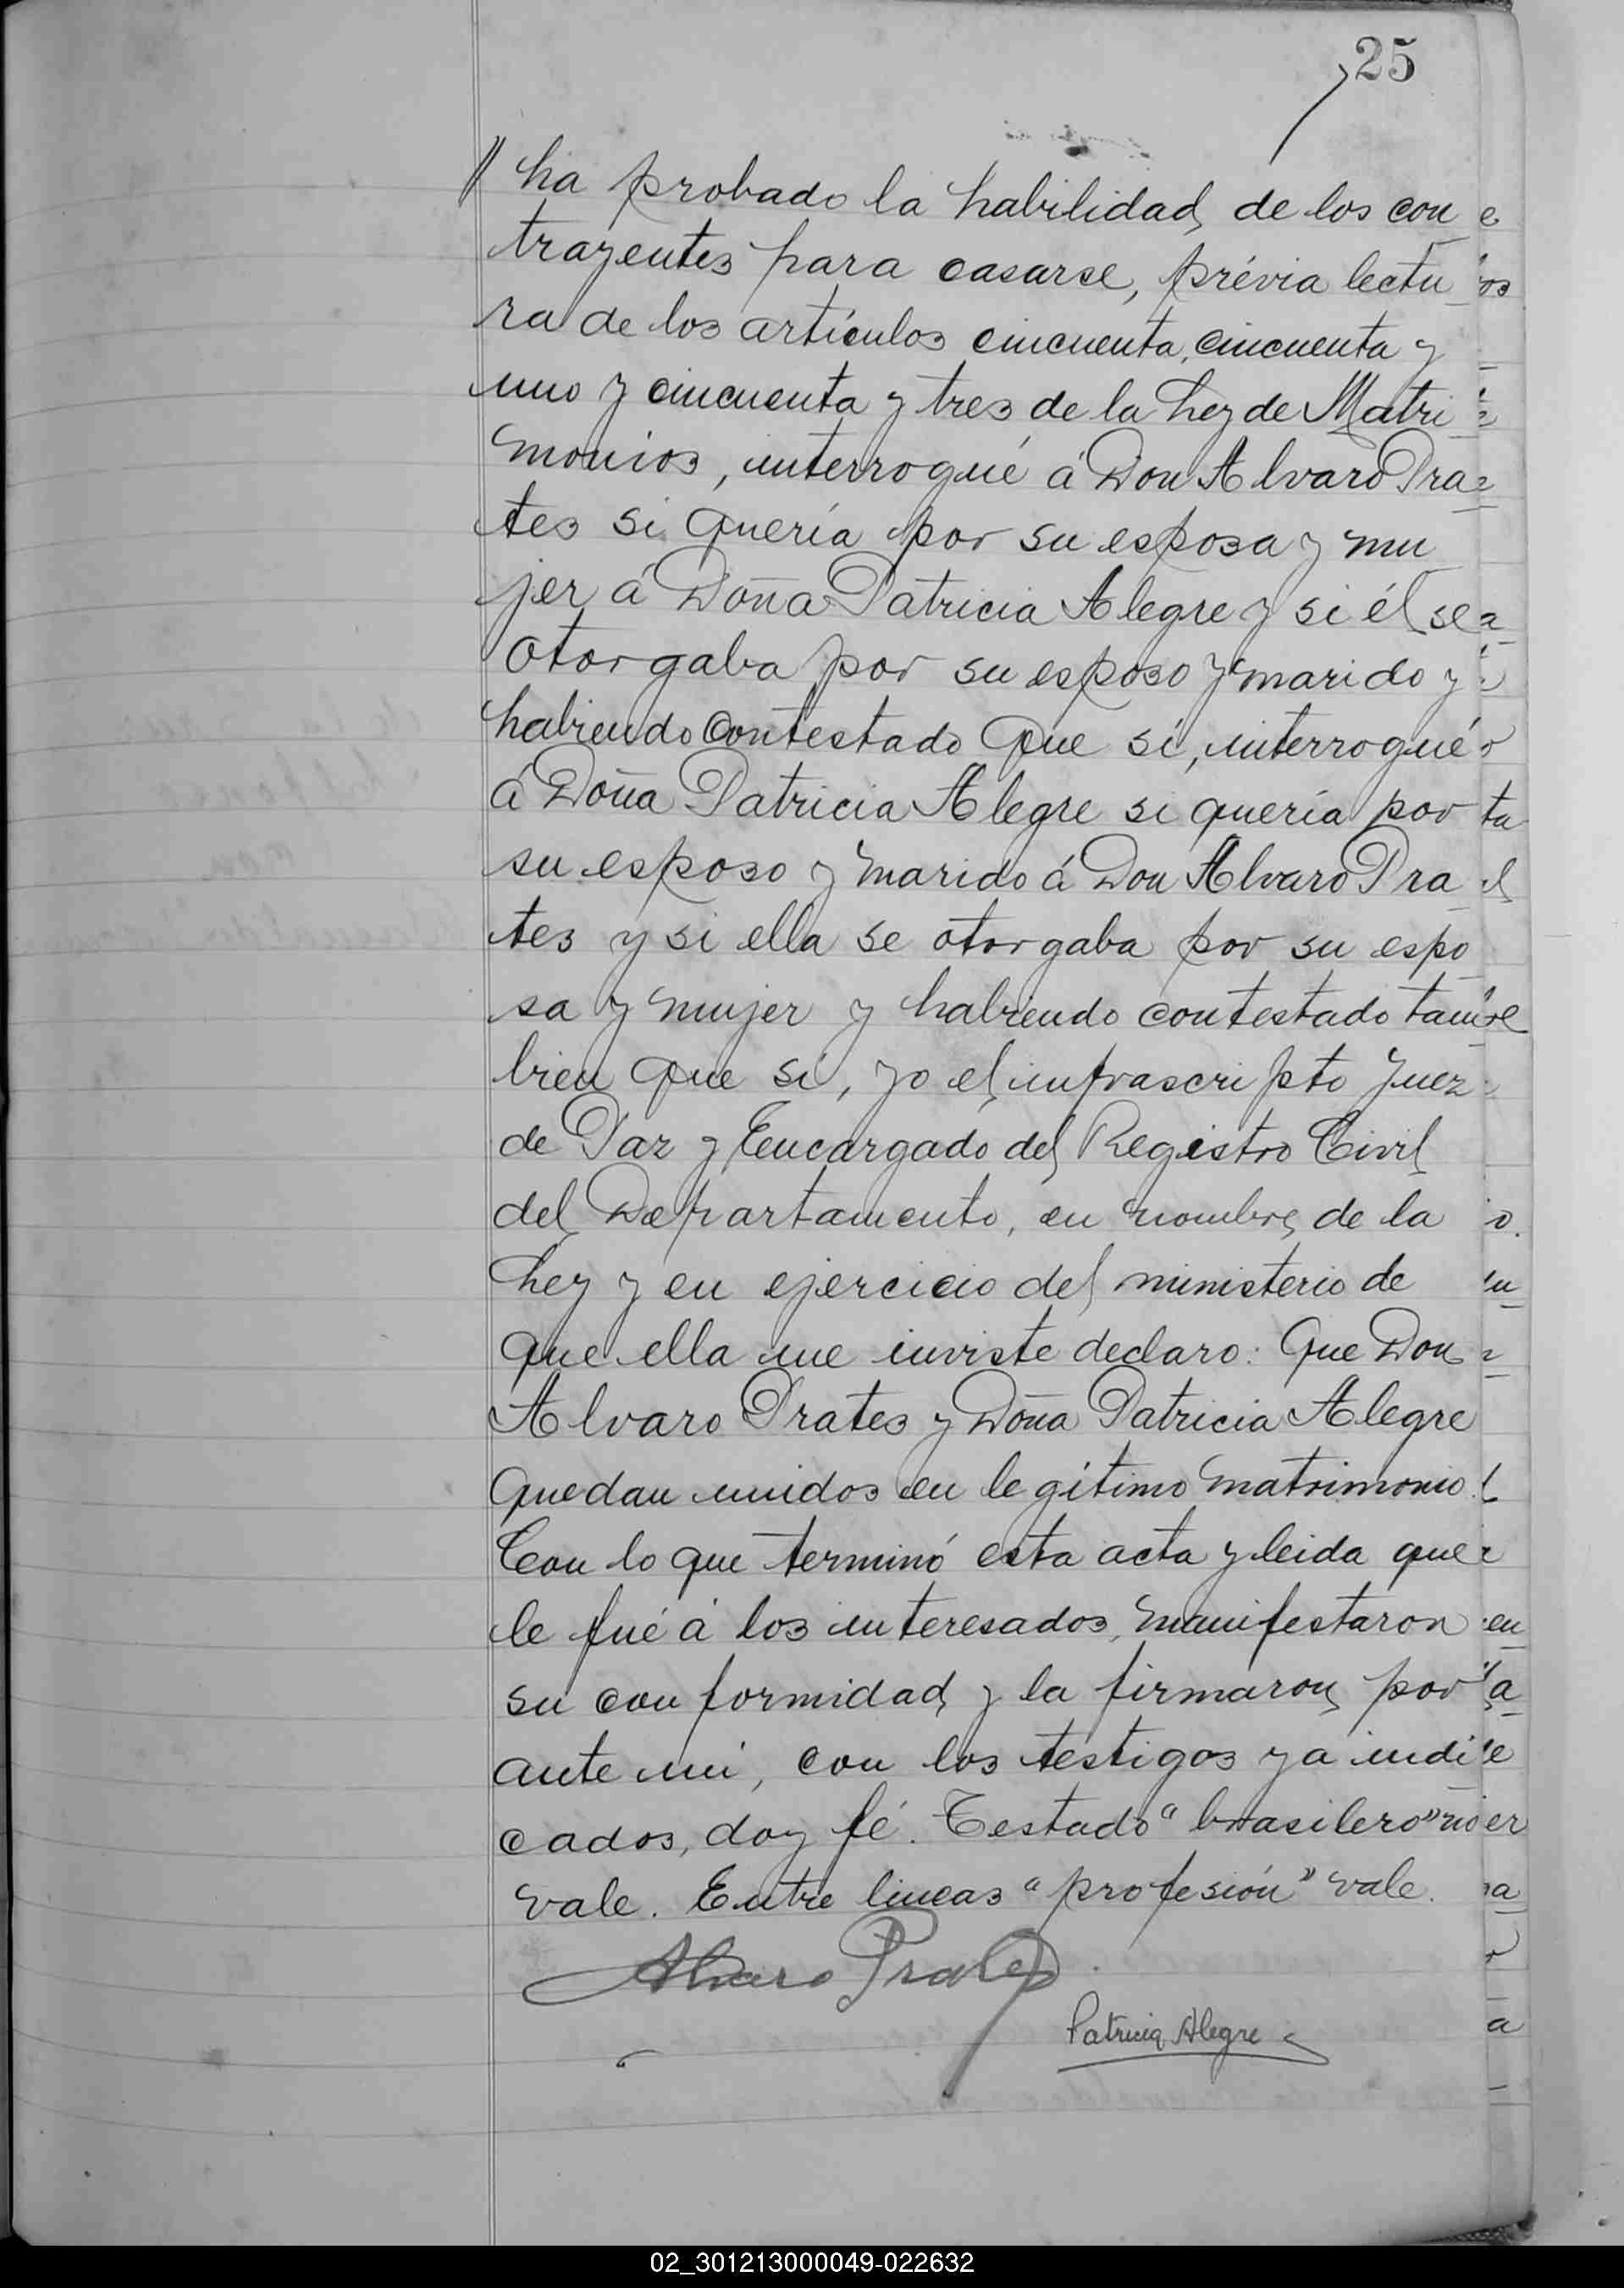 25
// ha probado la habilidad de los con
trayentes para casarse, prévia lectu
ra de los artículos cincuenta, cincuenta y
uno y cincuenta y tres de la Ley de Matri
monios, interrogué á Don Alvaro Pra
tes si quería por su esposa y mu
jer á Doña Patricia Alegre y si él se
otorgaba por su esposo y marido y
habiendo contestado que sí, interrogué
á Doña Patricia Alegre si quería por
su esposo y marido á Don Alvaro Pra
tes y si ella se otorgaba por su espo
sa y mujer y habiendo contestado tam
bien que sí, yo el infrascripto Juez
de Paz y Encargado del Registro Civil
del Departamento, en nombre de la
Ley y en ejercicio del ministerio de
que ella me inviste declaro: Que Don
Alvaro Prates y Doña Patricia Alegre
quedan unidos en legítimo matrimonio.
Con lo que terminó esta acta y leida que
le fué á los interesados, manifestaron
su conformidad y la firmaron por
ante mi, con los testigos ya indi
cados, doy fé. Testado "brasilero" no
vale. Entre lineas "profesión" vale.
Alvaro Prates
Patricia Alegre
02_301213000049-022632